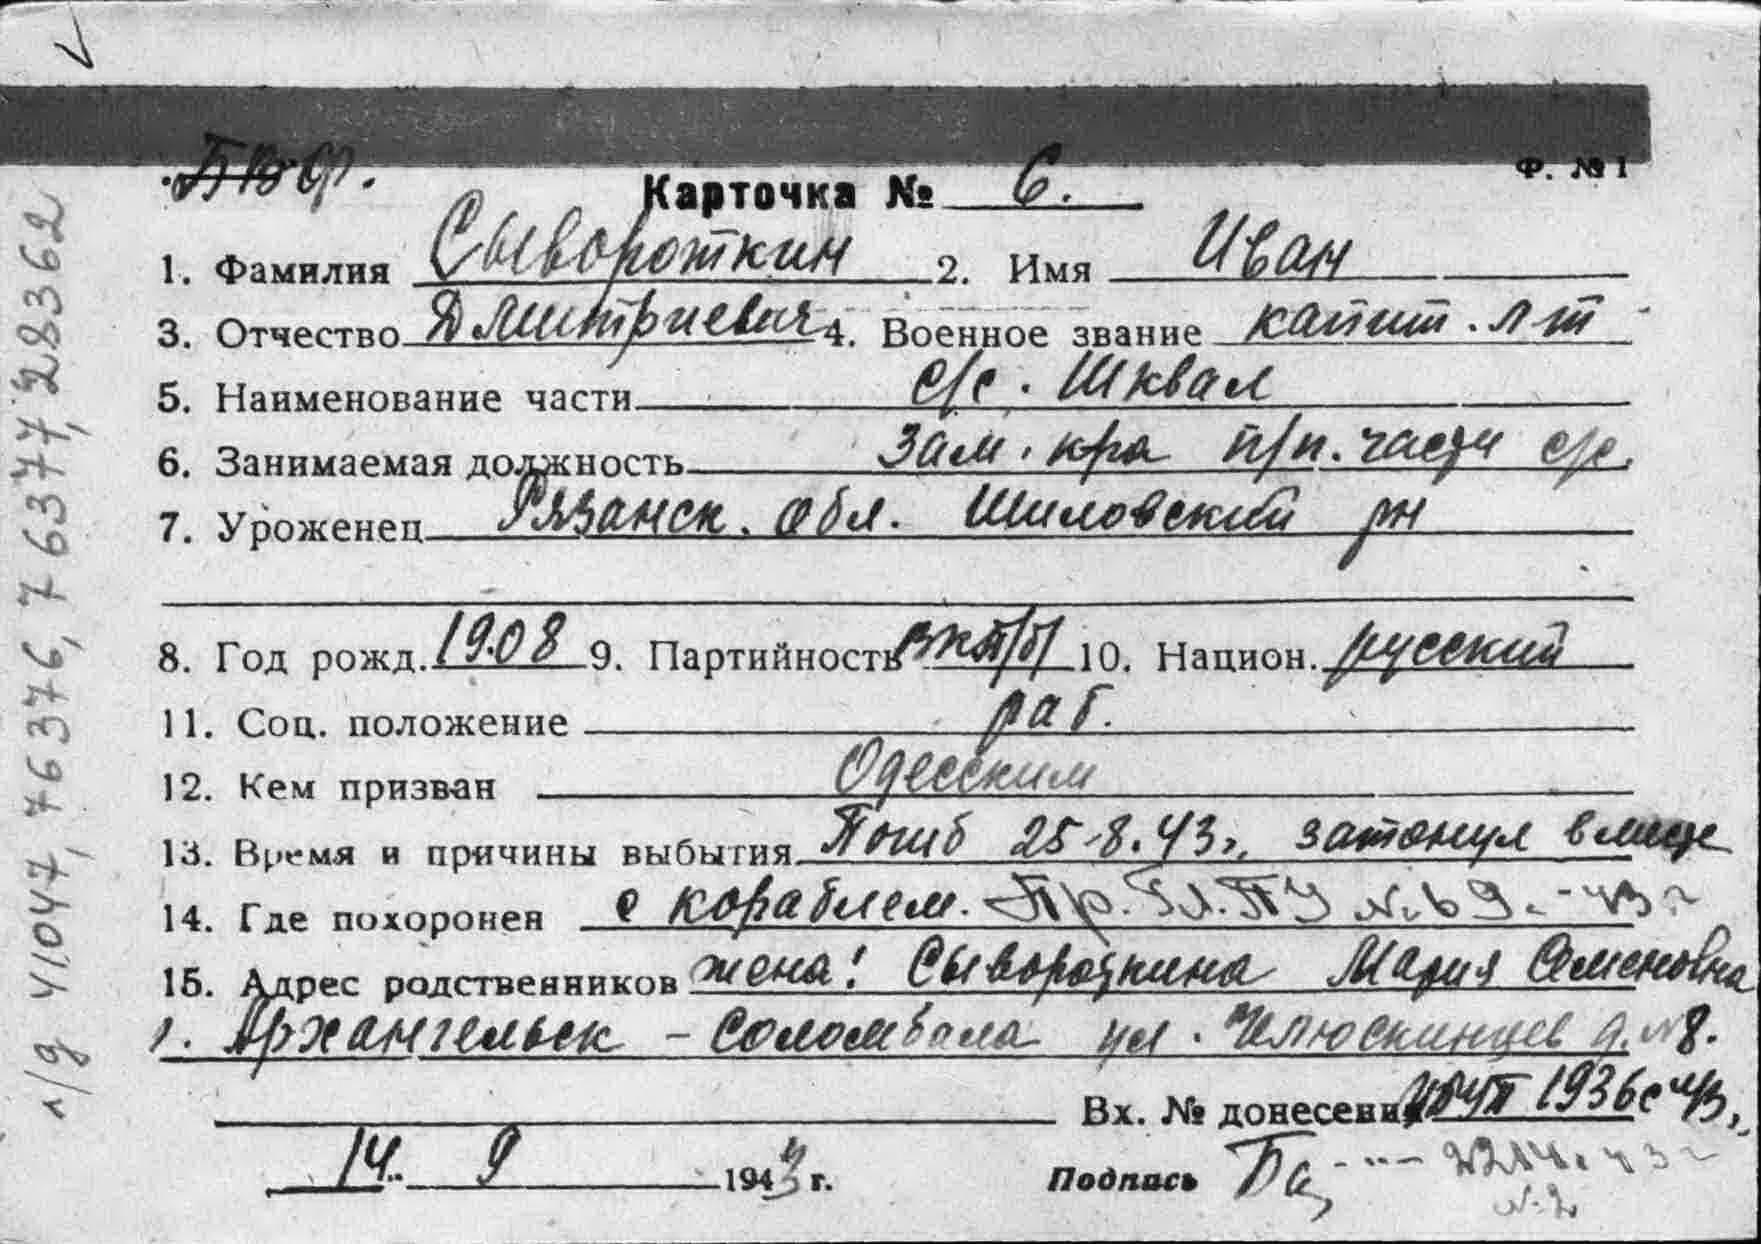 Ф. № 1
БВФ.
Карточка № 6.
1. Фамилия Сывороткин 2. Имя Иван
3. Отчество Дмитриевич 4. Военное звание капит. л-т
5. Наименование части с/с. Шквал
6. Занимаемая должность зам. к-ра п/п. части с/с.
7. Уроженец Рязанск. обл. Шиловский рн
8. Год рожд. 1908 9. Партийность ВКП/б/ 10. Национ. русский
11. Соц. положение раб.
12. Кем призван Одесским
13. Время и причины выбытия Погиб 25-8.43г. затонул вместе
14. Где похоронен с кораблем. Пр. Гл. ПУ № 69. -43 г
15. Адрес родственников жена: Сывороткина Мария Семеновна
г. Архангельск - Соломбала ул. Челюскинцев д. № 8.
Вх. № донесения 1936с 43г.
14. 9 1943 г. Подпись
2214. 43 г
л/д 41047, 76376, 76377, 283362